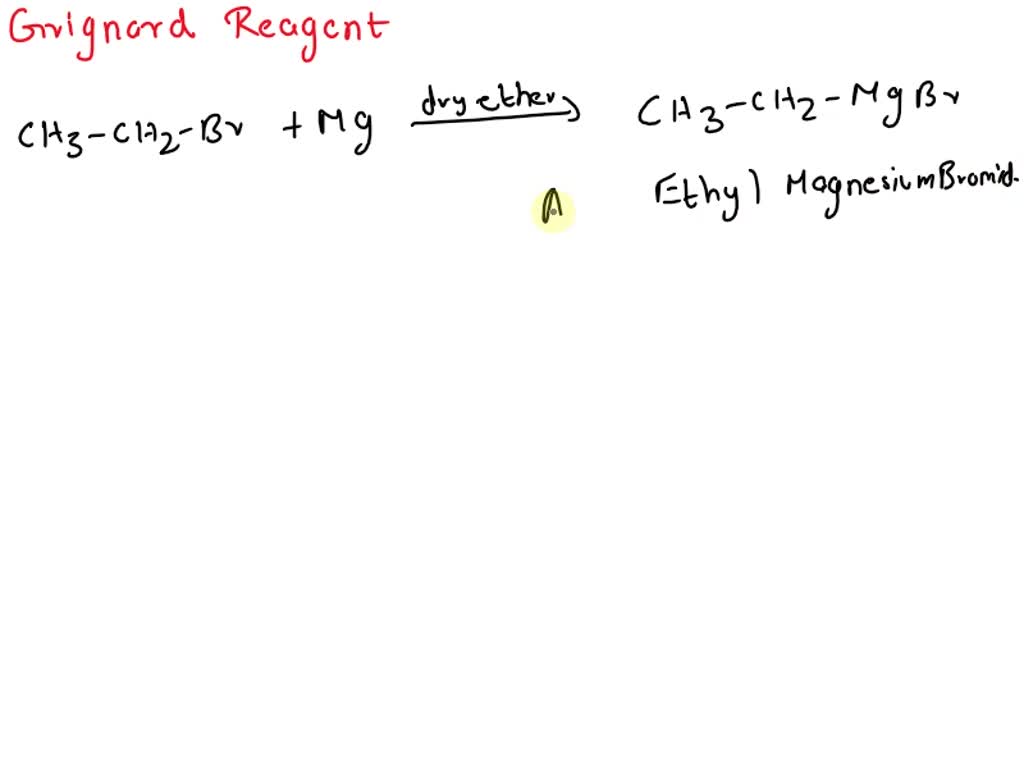 Grignard Reagent
CH3-CH2-Br + Mg dry ether CH3-CH2-MgBr
Ethyl Magnesium Bromid.
A